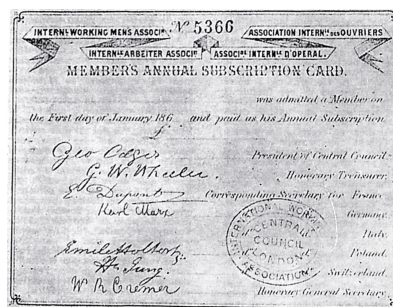 Nº 5366
INTERNL WORKING MENS ASSOCIN
ASSOCIATION INTERNLE DES OUVRIERS
INTERNLE ARBEITER ASSOCIN
ASSOCNE INTERNLE D'OPERAI.
MEMBER'S ANNUAL SUBSCRIPTION CARD.
was admitted a Member on
the First day of January 186 and paid as his Annual Subscription
Geo Odger President of Central Council
G. W. Wheeler Honorary Treasurer
E Dupont Corresponding Secretary for France
Karl Marx Germany
Italy
Emile Holtorp Poland
H. Jung Switzerland
W R Cremer Honorary General Secretary
INTERNATIONAL WORKING
ASSOCIATION
CENTRAL
COUNCIL
LONDON